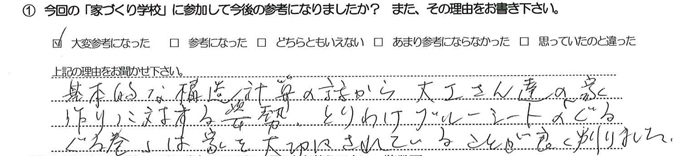 ① 今回の「家づくり学校」に参加して今後の参考になりましたか？ また、その理由をお書き下さい。
☑ 大変参考になった □ 参考になった □ どちらともいえない □ あまり参考にならなかった □ 思っていたのと違った
上記の理由をお聞かせ下さい。
基本的な構造計算の話から 大工さん達の家
作りに対する姿勢、とりわけブルーシートの「ぐる
ぐる巻」は家を大切にされていることが良く判りました。